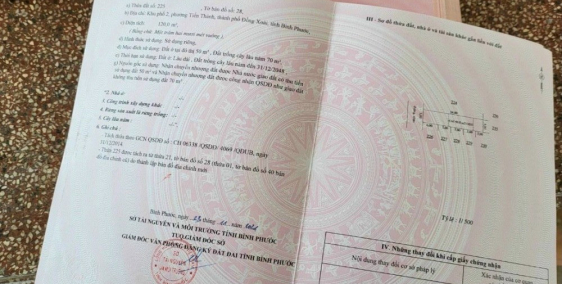 a) Thửa đất số: 225 Tờ bản đồ số: 28,
b) Địa chỉ: Khu phố 2, phường Tiến Thành, thành phố Đồng Xoài, tỉnh Bình Phước,
c) Diện tích: 120.0 m²
( Bằng chữ: Một trăm hai mươi mét vuông ),
d) Hình thức sử dụng: Sử dụng riêng,
đ) Mục đích sử dụng: Đất ở tại đô thị 50 m², Đất trồng cây lâu năm 70 m².
e) Thời hạn sử dụng: Đất ở: Lâu dài , Đất trồng cây lâu năm đến 31/12/2048
g) Nguồn gốc sử dụng: Nhận chuyển nhượng đất được Nhà nước giao đất có thu tiền
sử dụng đất 50 m² và Nhận chuyển nhượng đất được công nhận QSDĐ như giao đất
không thu tiền sử dụng đất 70 m²
2. Nhà ở
3. Công trình xây dựng khác
4. Rừng sản xuất là rừng trồng:
5. Cây lâu năm:
6. Ghi chú:
Tách thửa theo GCN QSDĐ số : CH 06338 /QSDĐ/ /QĐUB, ngày
11/12/2014.
Thửa 225 được tách ra từ thửa 27, tờ bản đồ số 28 (thửa 91, tờ bản đồ số 40 bản
đồ địa chính cũ) do thành lập bản đồ địa chính mới
Bình Phước, ngày tháng năm
SỞ TÀI NGUYÊN VÀ MÔI TRƯỜNG TỈNH BÌNH PHƯỚC
TUQ GIÁM ĐỐC SỞ
GIÁM ĐỐC VĂN PHÒNG ĐĂNG KÝ ĐẤT ĐAI TỈNH BÌNH PHƯỚC
III - Sơ đồ thửa đất, nhà ở và tài sản khác gắn liền với đất
Tỷ lệ : 1/ 500
IV. Những thay đổi khi cấp giấy chứng nhận
Nội dung thay đổi cơ sở pháp lý
Xác nhận của cơ quan